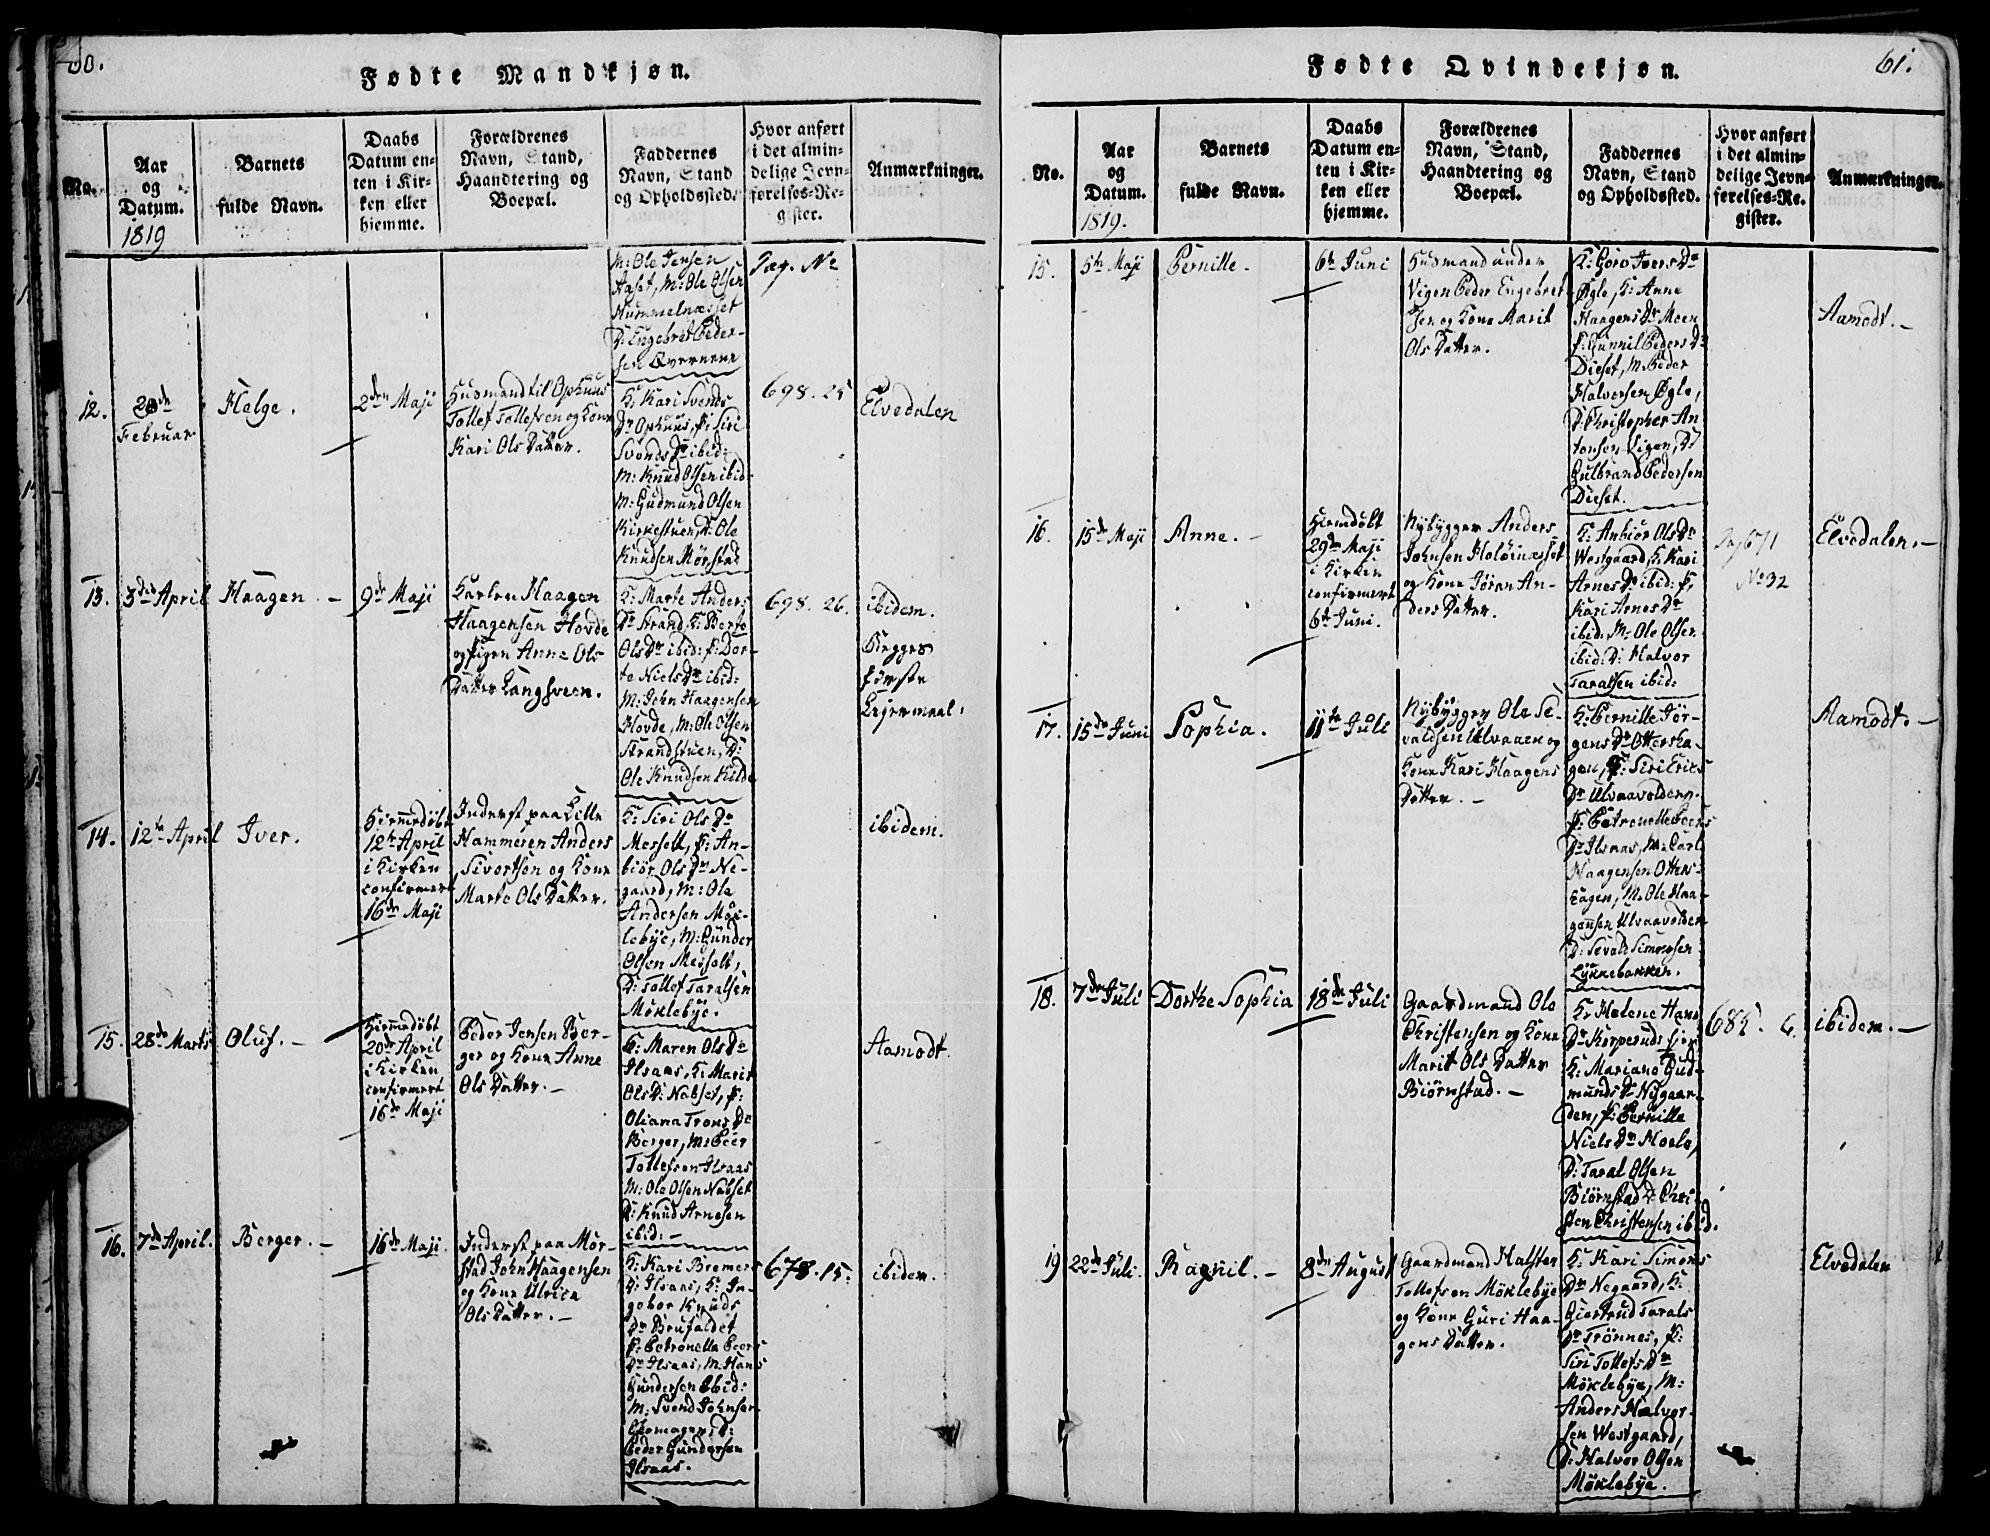 60.
Fødte Mandkjøn.
No.
Aar
og
Datum.
1819
Barnets
fulde Navn.
Daabs
Datum en-
ten i Kir-
ken eller
hjemme.
Forældrenes
Navn, Stand,
Haandtering og
Boepæl.
Faddernes
Navn, Stand
og Opholdssted.
Hvor anført
i det almin-
delige Jevn-
førelses-Re-
gister.
Anmærkninger.
M: Ole Jensen
Aaset, M: Ole Olsen
Hummelnæsset
D: Engebret Peder-
sen Qvernene
Pag. No
12.
20de
Februar
Helge.
2den Maji
Husmand til Ophuus
Tollef Tollefsen og Kone
Kari Ols Datter.
K: Kari Svends
Dr Ophuus, P: Siri
Svends Dr ibid:
M: Knud Olsen ibid:
M: Gudmund Olsen
Kirkestuen, D: Ole
Knudsen Mørstad
698. 25
Elvedalen
13.
3die April
Haagen. -
9de Maji
Karlen Haagen
Haagensen Hovde
og Pigen Anne Ols
Datter Langsveen.
K: Marte Anders
Dr Strand, K: Berte
Ols Dr ibid: P: Dor-
te Niels Dr ibid:
M: John Haagensen
Hovde, M: Ole Olsen
Strandstuen, D:
Ole Knudsen Kilde
698. 26.
ibidem.
Begges
første
Leiermaal.
14.
12te April
Iver.
Hiemmedøbt
12te April
i Kirken
confirmert
16de Maji
Inderst paa Lille
Hammeren Anders
Sivertsen og Kone
Marte Ols Datter.
K: Siri Ols Dr
Messelt, P: An-
biør Ols Dr Ne-
gaard, M: Ole
Andersen Møk-
lebye, M: Gunder
Olsen Messelt,
D: Tollef Taralsen
Møklebye.
ibidem.
15.
28de Marts
Oluf. -
Hiemmedøbt
20de April
i Kirken
confirmert
16de Maji
Peder Jensen Ber-
ger og Kone Anne
Ols Datter. -
K: Maren Ols Dr
Ilsaas, K: Marit
Ols D: Nabset, P:
Oliana Trons Dr
Berger, M: Peer
Tollefsen Ilsaas
M: Ole Olsen Nabset
D: Knud Arnesen
ibid: -
Aamodt.
16.
7de April.
Berger. -
16de Maji.
Inderst paa Mør-
stad John Haagensen
og Kone Ulrica
Ols Datter. -
K: Kari Bremers
D: Ilsaas, K: In-
gebor Knuds
Dr Brufaldet
P: Petronella Peers
Dr Ilsaas, M: Hans
Gundersen ibid:
M: Svend Johnsen
D:
Peder Gundersen
Ilsaas.
678. 15.
ibidem.
61.
Fødte Qvindekjøn.
No.
Aar
og
Datum.
1819.
Barnets
fulde Navn.
Daabs
Datum en-
ten i Kir-
ken eller
hjemme.
Forældrenes
Navn, Stand,
Haandtering og
Boepæl.
Faddernes
Navn, Stand
og Opholdssted.
Hvor anført
i det almin-
delige Jevn-
førelses-Re-
gister.
Anmærkninger.
15.
5te Maji
Pernille.
6te Juni
Husmand under
Vigen Peder Engebret-
sen og Kone Marit
Ols Datter.
K: Goro Ivers Dr
Øgle, K: Anne
Haagens Dr Moen
P: Gunnil Peders Dr
Dieset, M: Peder
Halversen Øgle,
D: Christopher An-
tonsen Ligen, D:
Gulbrand Pedersen
Dieset.
Aamodt. -
16.
15de Maji
Anne. -
Hiemdøbt
29de Maji
i Kirken
confirmert
6te Juni.
Nybygger Anders
Johnsen Holøinæsset
og Kone Jøran An-
ders Datter.
K: Anbiør Ols Dr
Westgaard, K: Kari
Arnes Dr ibid: P:
Kari Arnes Dr
ibid: M: Ole Olsen
ibid: D: Halvor
Taralsen ibid:
Pag 671
No 32
Elvedalen. -
17.
15de Juni
Sophia.
11te Juli
Nybygger Ole Se-
valdsen Ulvaaen og
Kone Kari Haagens
Datter. -
K: Pernille Jør-
gens Dr Otterska-
gen, P: Siri Erics
Dr Ulvaavolden.
P: Petronelle Peers
Dr Ilsaas, M: Carl
Haagensen Otters-
kagen, M: Ole Haa-
gensen Ulvaavolden
D: Sevald Simensen
Lykkebakken.
Aamodt. -
18.
7de Juli
Dorthe Sophia
18de Juli
Gaardmand Ole
Christensen og Kone
Marit Ols Datter
Biørnstad. -
K: Helene Hans
Dr
K: Mariane Gud-
munds Dr Nygaar-
den, P: Pernille
Niels Dr Hoele,
D: Taral Olsen
Biørnstad D: Chri-
sten Christensen ibid.
685. 6.
ibidem. -
19
22de Juli.
Ragnil. -
8de August
Gaardmand Halsten
Tollefsen Møklebye
og Kone Guri Haa-
gens Datter.
K: Kari Simens
Dr Negaard, K:
Giertrud Tarals
Dr Trønnes, P:
Siri Tollefs Dr
Møklebye, M:
Anders Halvor-
sen Westgaard,
D: Halvor Olsen
Møklebye.
Elvedalen